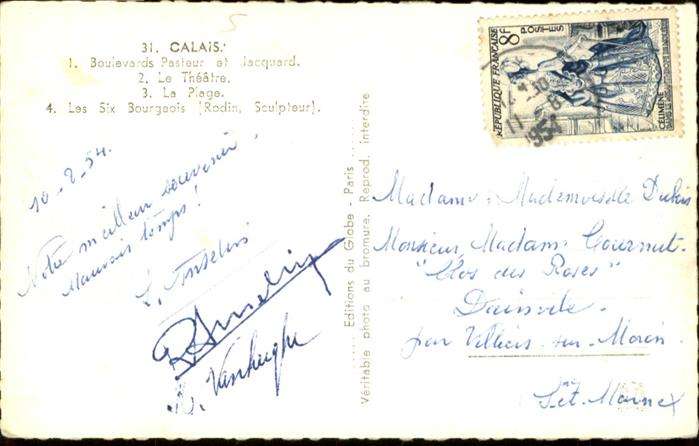 31. CALAIS.
1. Boulevards Pasteur et Jacquard.
2. Le Théâtre.
3. La Plage.
4. Les Six Bourgeois (Rodin, Sculpteur).
10-8-54.
Notre meilleur souvenir!
Mauvais temps!
Editions du Globe - Paris
Véritable photo au bromure. Reprod. interdite
REPUBLIQUE FRANÇAISE
8F
POSTES
CÉLIMÈNE
1954
Madame, Mademoiselle
Monsieur, Madame Gournut
"Clos des Roses"
par Villiers-sur-Morin
Set Marne